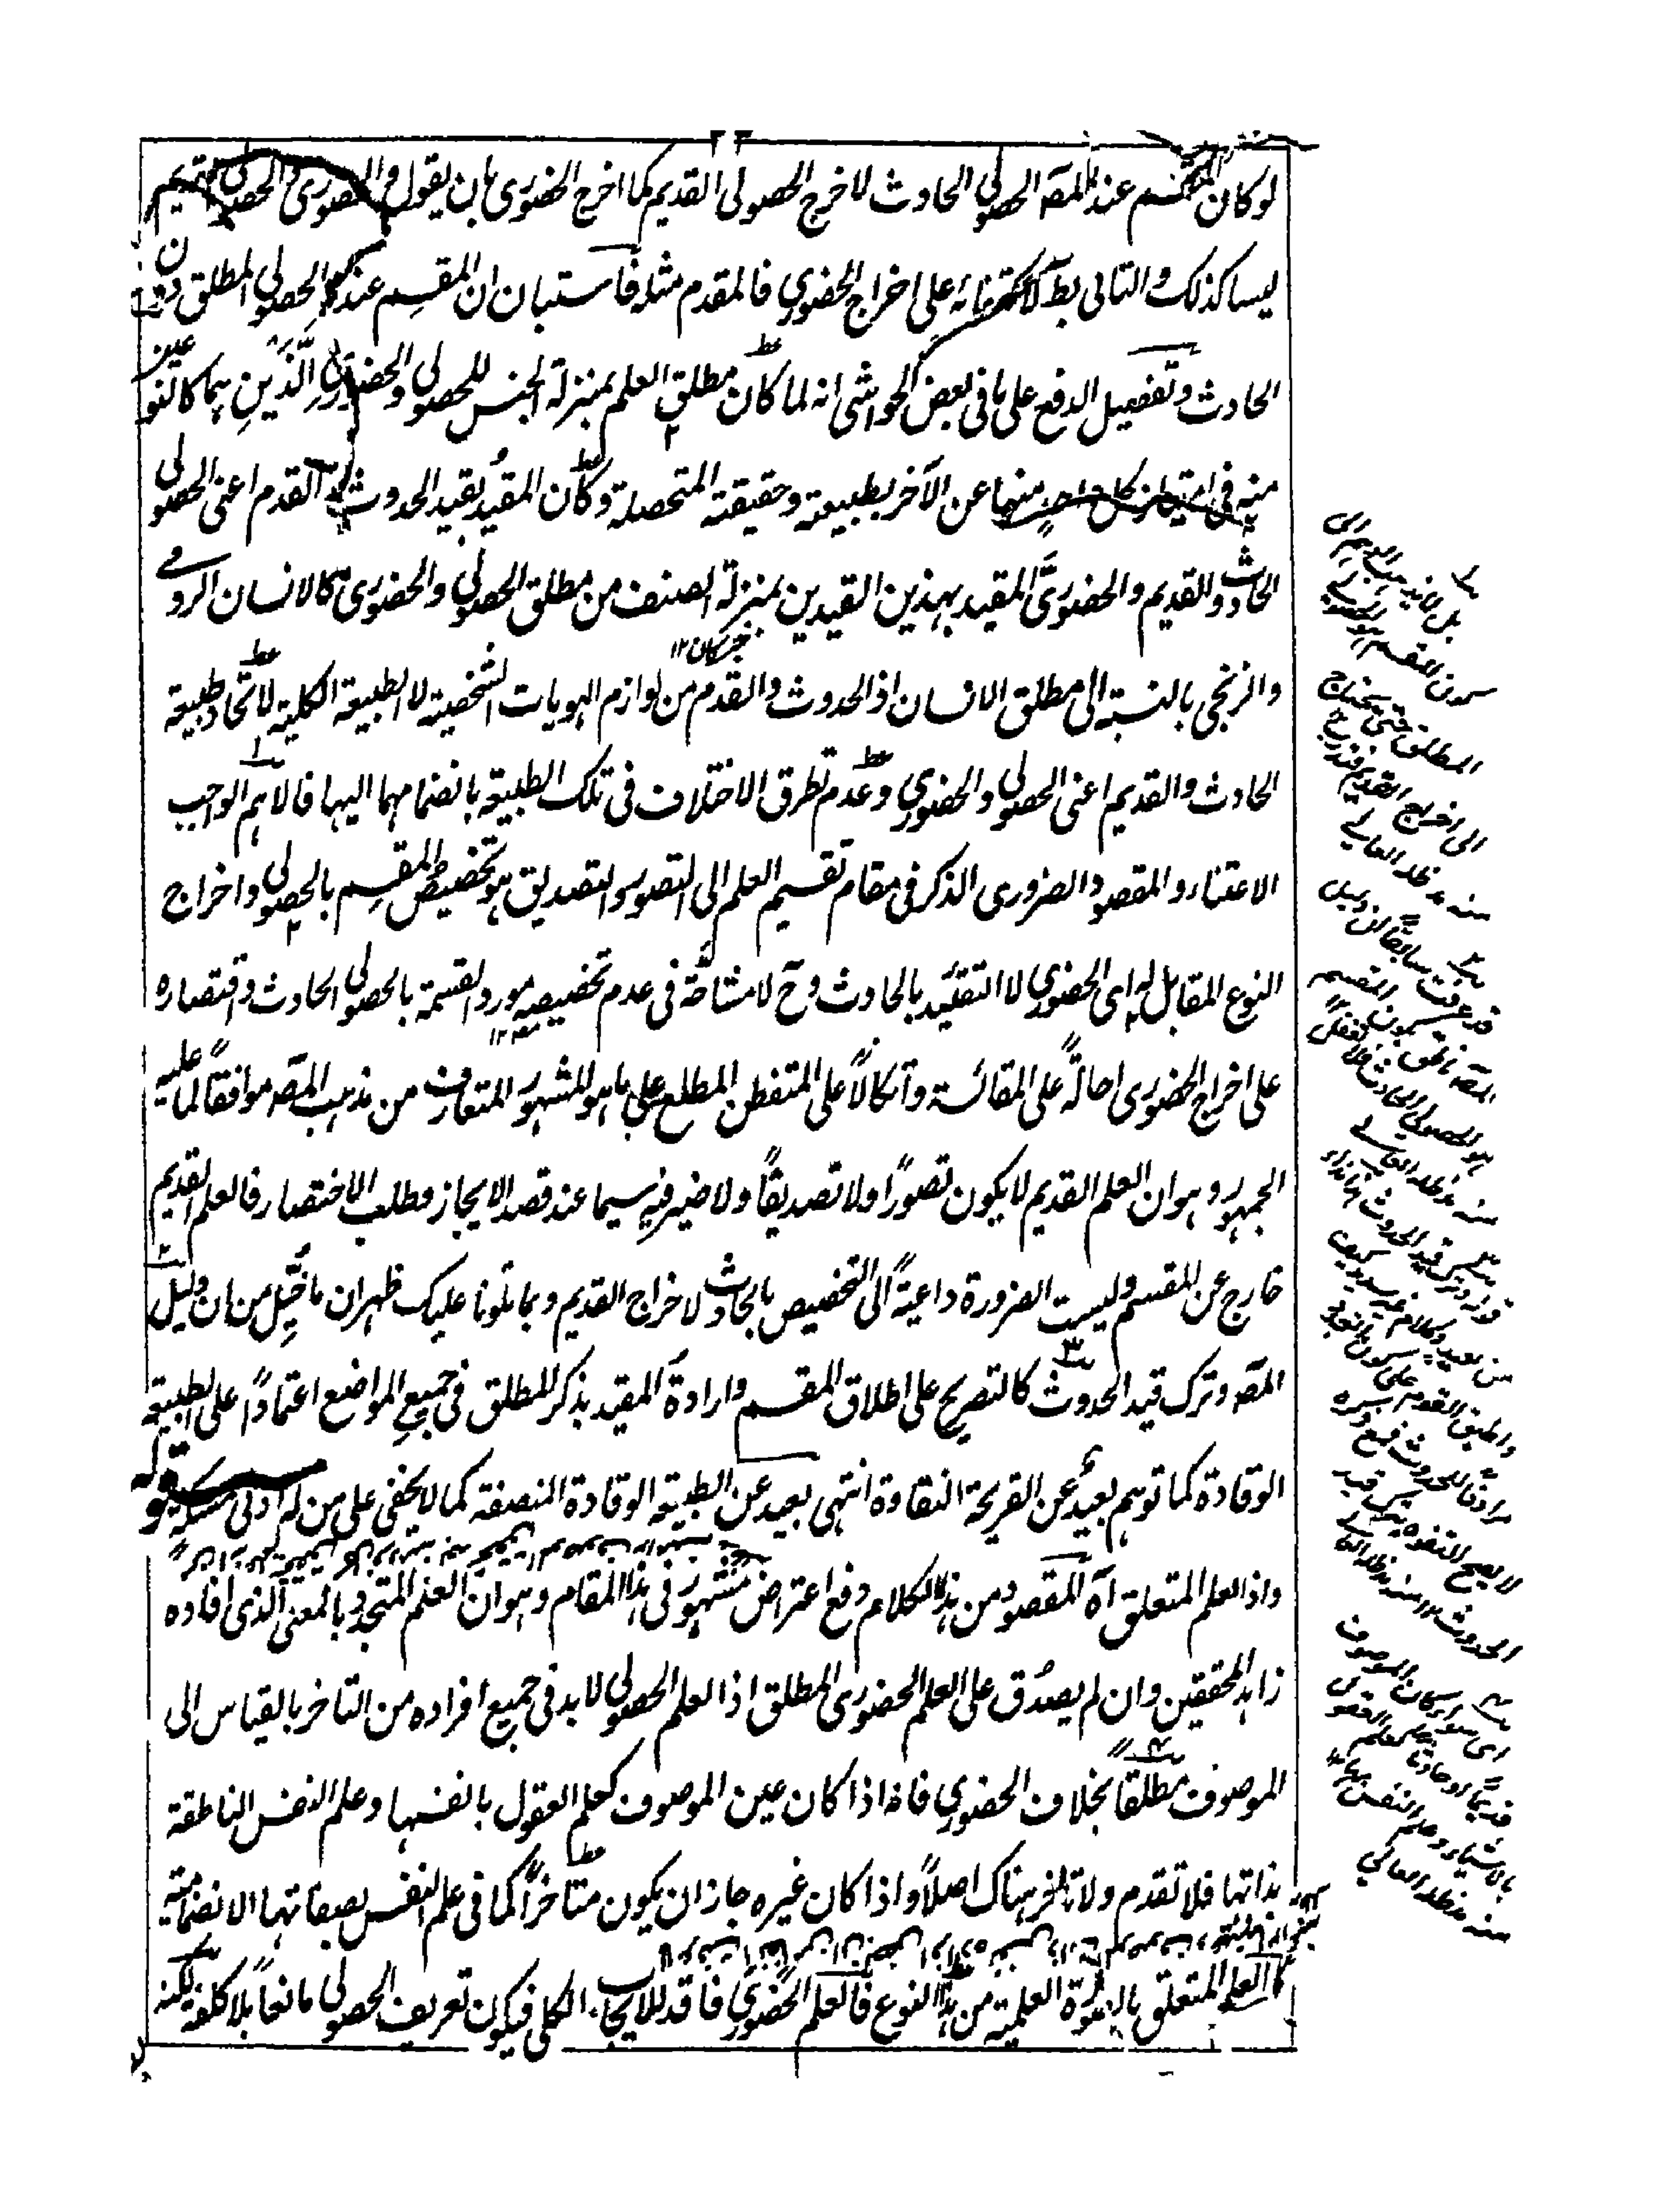 ٢٢
لو كان المقسم عند المصه الحصولي الحادث لاخرج الحصولي القديم كما اخرج الحضوري بان يقول والحضوري والحصولي القديم
ليسا كذلك والتالي بط لاكتفائه على اخراج الحضوري فالمقدم مثله فاستبان ان المقسم عنده الحصولي المطلق دون
الحادث وتفصيل الدفع على ما في بعض الحواشي انه لما كان مطلق العلم بمنزلة الجنس للحصولي والحضوري الذين هما كالنوعين
منه في امتياز كل واحد منهما عن الآخر بطبيعته وحقيقته المتحصلة وكان المقيد بقيد الحدوث القدم اعني الحصولي
الحادث والقديم والحضوري المقيد بهذين القيدين بمنزلة الصنف من مطلق الحصولي والحضوري كالانسان الرومي
والزنجي بالنسبة الى مطلق الانسان اذ الحدوث والقدم من لوازم الهويات الشخصية لا الطبيعة الكلية لاتحاد طبيعة
الحادث والقديم اعني الحصولي والحضوري وعدم تطرق الاختلاف في تلك الطبيعة بانضمامهما اليها فالاهم الواجب
الاعتناء والمقصود الضروري الذكر في مقام تقسيم العلم الى التصور والتصديق هو تخصيص المقسم بالحصولي واخراج
النوع المقابل له اى الحضوري لا التقئيد بالحادث وح لا مشاحة في عدم تخصيصه مورد القسمة بالحصولي الحادث واقتصاره
على اخراج الحضوري احالة على المقائسة واتكالا على المتفطن المطلع على ما هو المشهور المتعارف من مذهب المصه موافقا لما عليه
الجمهور وهو ان العلم القديم لا يكون تصورا ولا تصديقا ولا ضير فيه سيما عند قصد الايجاز ومطلب الاختصار فالعلم القديم
خارج عن المقسم وليست الضرورة داعية الى التخصيص بالحادث لاخراج القديم وبما تلونا عليك ظهر ان ما تخيل من ان دليل
المصه وترك قيد الحدوث كالتصريح على اطلاق المقسم وارادة المقيد بذكر المطلق في جميع المواضع اعتمادا على الطبيعة
الوقادة كما توهم بعيد عن القريحة النقادة انتهى بعيد عن الطبيعة الوقادة المنصفة كما لا يخفى على من له ادنى مسكة قوله
واذ العلم المتعلق آه المقصود من هذا الكلام دفع اعتراض مشهور في هذا المقام وهو ان العلم المتجدد بالمعنى الذي افاده
زاهد المحققين وان لم يصدق على العلم الحضوري المطلق اذا العلم الحصولي لابد في جميع افراده من التاخر بالقياس الى
الموصوف مطلقا بخلاف الحضوري فانه اذا كان عين الموصوف كعلم العقول بانفسها وعلم النفس الناطقة
بذاتها فلا تقدم ولا تاخر هناك اصلا واذا كان غيره جاز ان يكون متاخرا كما في علم النفس بصفاتها الانضمامية
كالعلم المتعلق بالصورة العلمية من هذا النوع فالعلم الحضوري فاقد للايجاب الكلي فيكون تعريف الحصولي مانعا بلا كلفة لكنه
المطلق حتى يحتاج
الى اخراج القديم
منه مد ظله العالي
قد عرفت سابقا
هو الحصولي الحادث فلا تغفل
منه مد ظله العالي
اى سواء كان الموصوف
قديما او حادثا كعلم العقول
بالاشياء وعلم النفس بها
منه مد ظله العالي